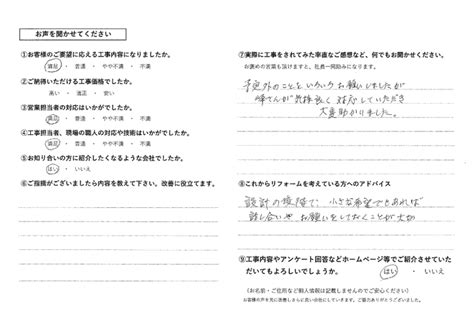 お声を聞かせてください
①お客様のご要望に応える工事内容になりましたか。
満足 ・ 普通 ・ やや不満 ・ 不満
②ご納得いただける工事価格でしたか。
高い ・ 適正 ・ 安い
③営業担当者の対応はいかがでしたか。
満足 ・ 普通 ・ やや不満 ・ 不満
④工事担当者、現場の職人の対応や技術はいかがでしたか。
満足 ・ 普通 ・ やや不満 ・ 不満
⑤お知り合いの方に紹介したくなるような会社でしたか。
はい ・ いいえ
⑥ご指摘がございましたら内容を教えて下さい。改善に役立てます。
⑦実際に工事をされてみた率直なご感想など、何でもお聞かせください。
お褒めの言葉も頂けますと、社員一同励みになります。
予定外のことをいろいろお願いしましたが
皆さんが気持良く対応していただき
大変助かりました。
⑧これからリフォームを考えている方へのアドバイス
設計の段階で、小さな希望でもあれば
話し合いやお願いをしておくことが大切
⑨工事内容やアンケート回答などホームページ等でご紹介させていた
だいてもよろしいでしょうか。
はい ・ いいえ
(お名前・ご住所など個人情報は記載しませんのでご安心ください)
お客様の声を元に改善しさらに良い会社にしていきます。ご協力ありがとうございました。